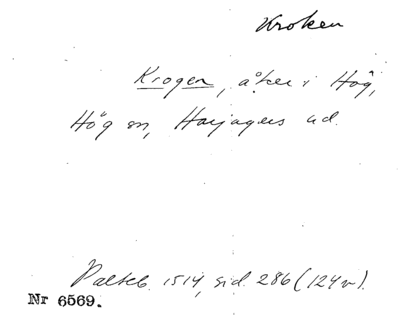 Kroken
Krogen, åker i Hög,
Hög sn, Harjagers hd.
Palteb. 1514, sid. 286 (124v).
Nr 6569.